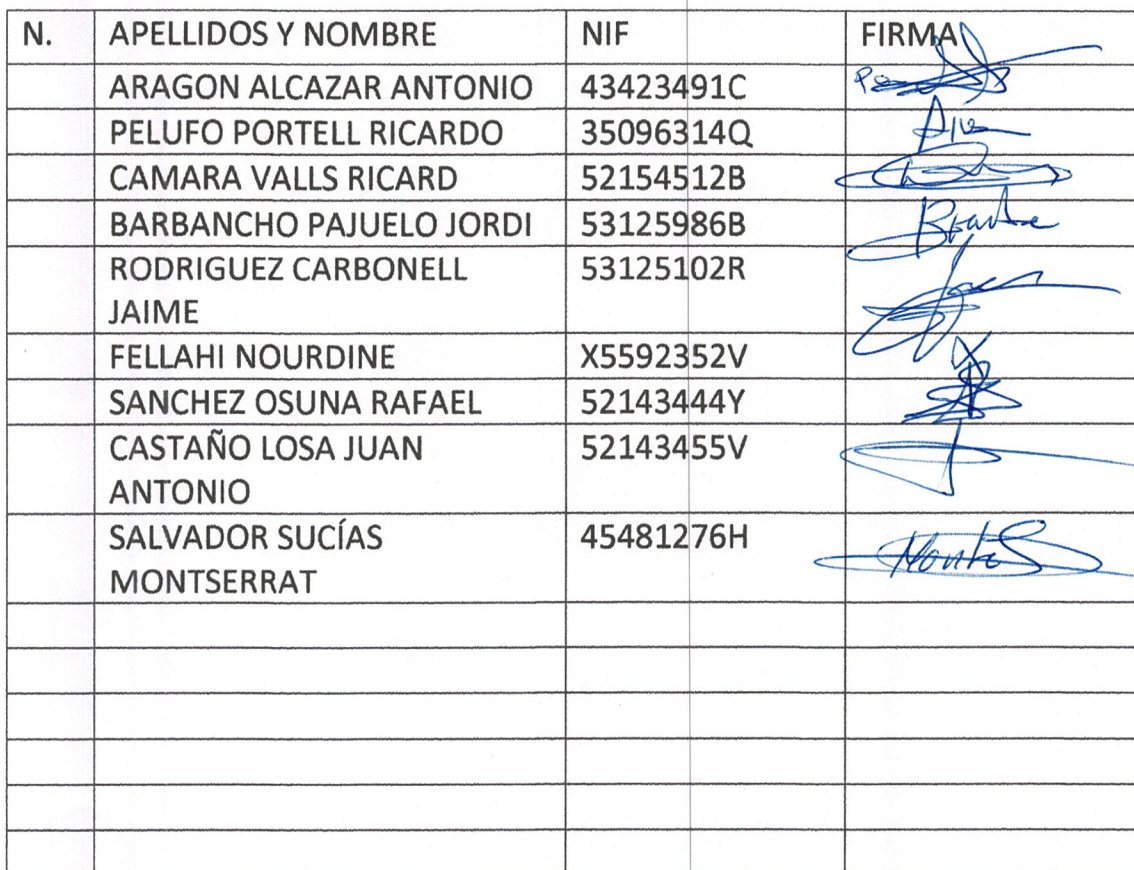 N. APELLIDOS Y NOMBRE NIF FIRMA
ARAGON ALCAZAR ANTONIO 43423491C
PELUFO PORTELL RICARDO 35096314Q
CAMARA VALLS RICARD 52154512B
BARBANCHO PAJUELO JORDI 53125986B
RODRIGUEZ CARBONELL 53125102R
JAIME
FELLAHI NOURDINE X5592352V
SANCHEZ OSUNA RAFAEL 52143444Y
CASTAÑO LOSA JUAN 52143455V
ANTONIO
SALVADOR SUCÍAS 45481276H
MONTSERRAT